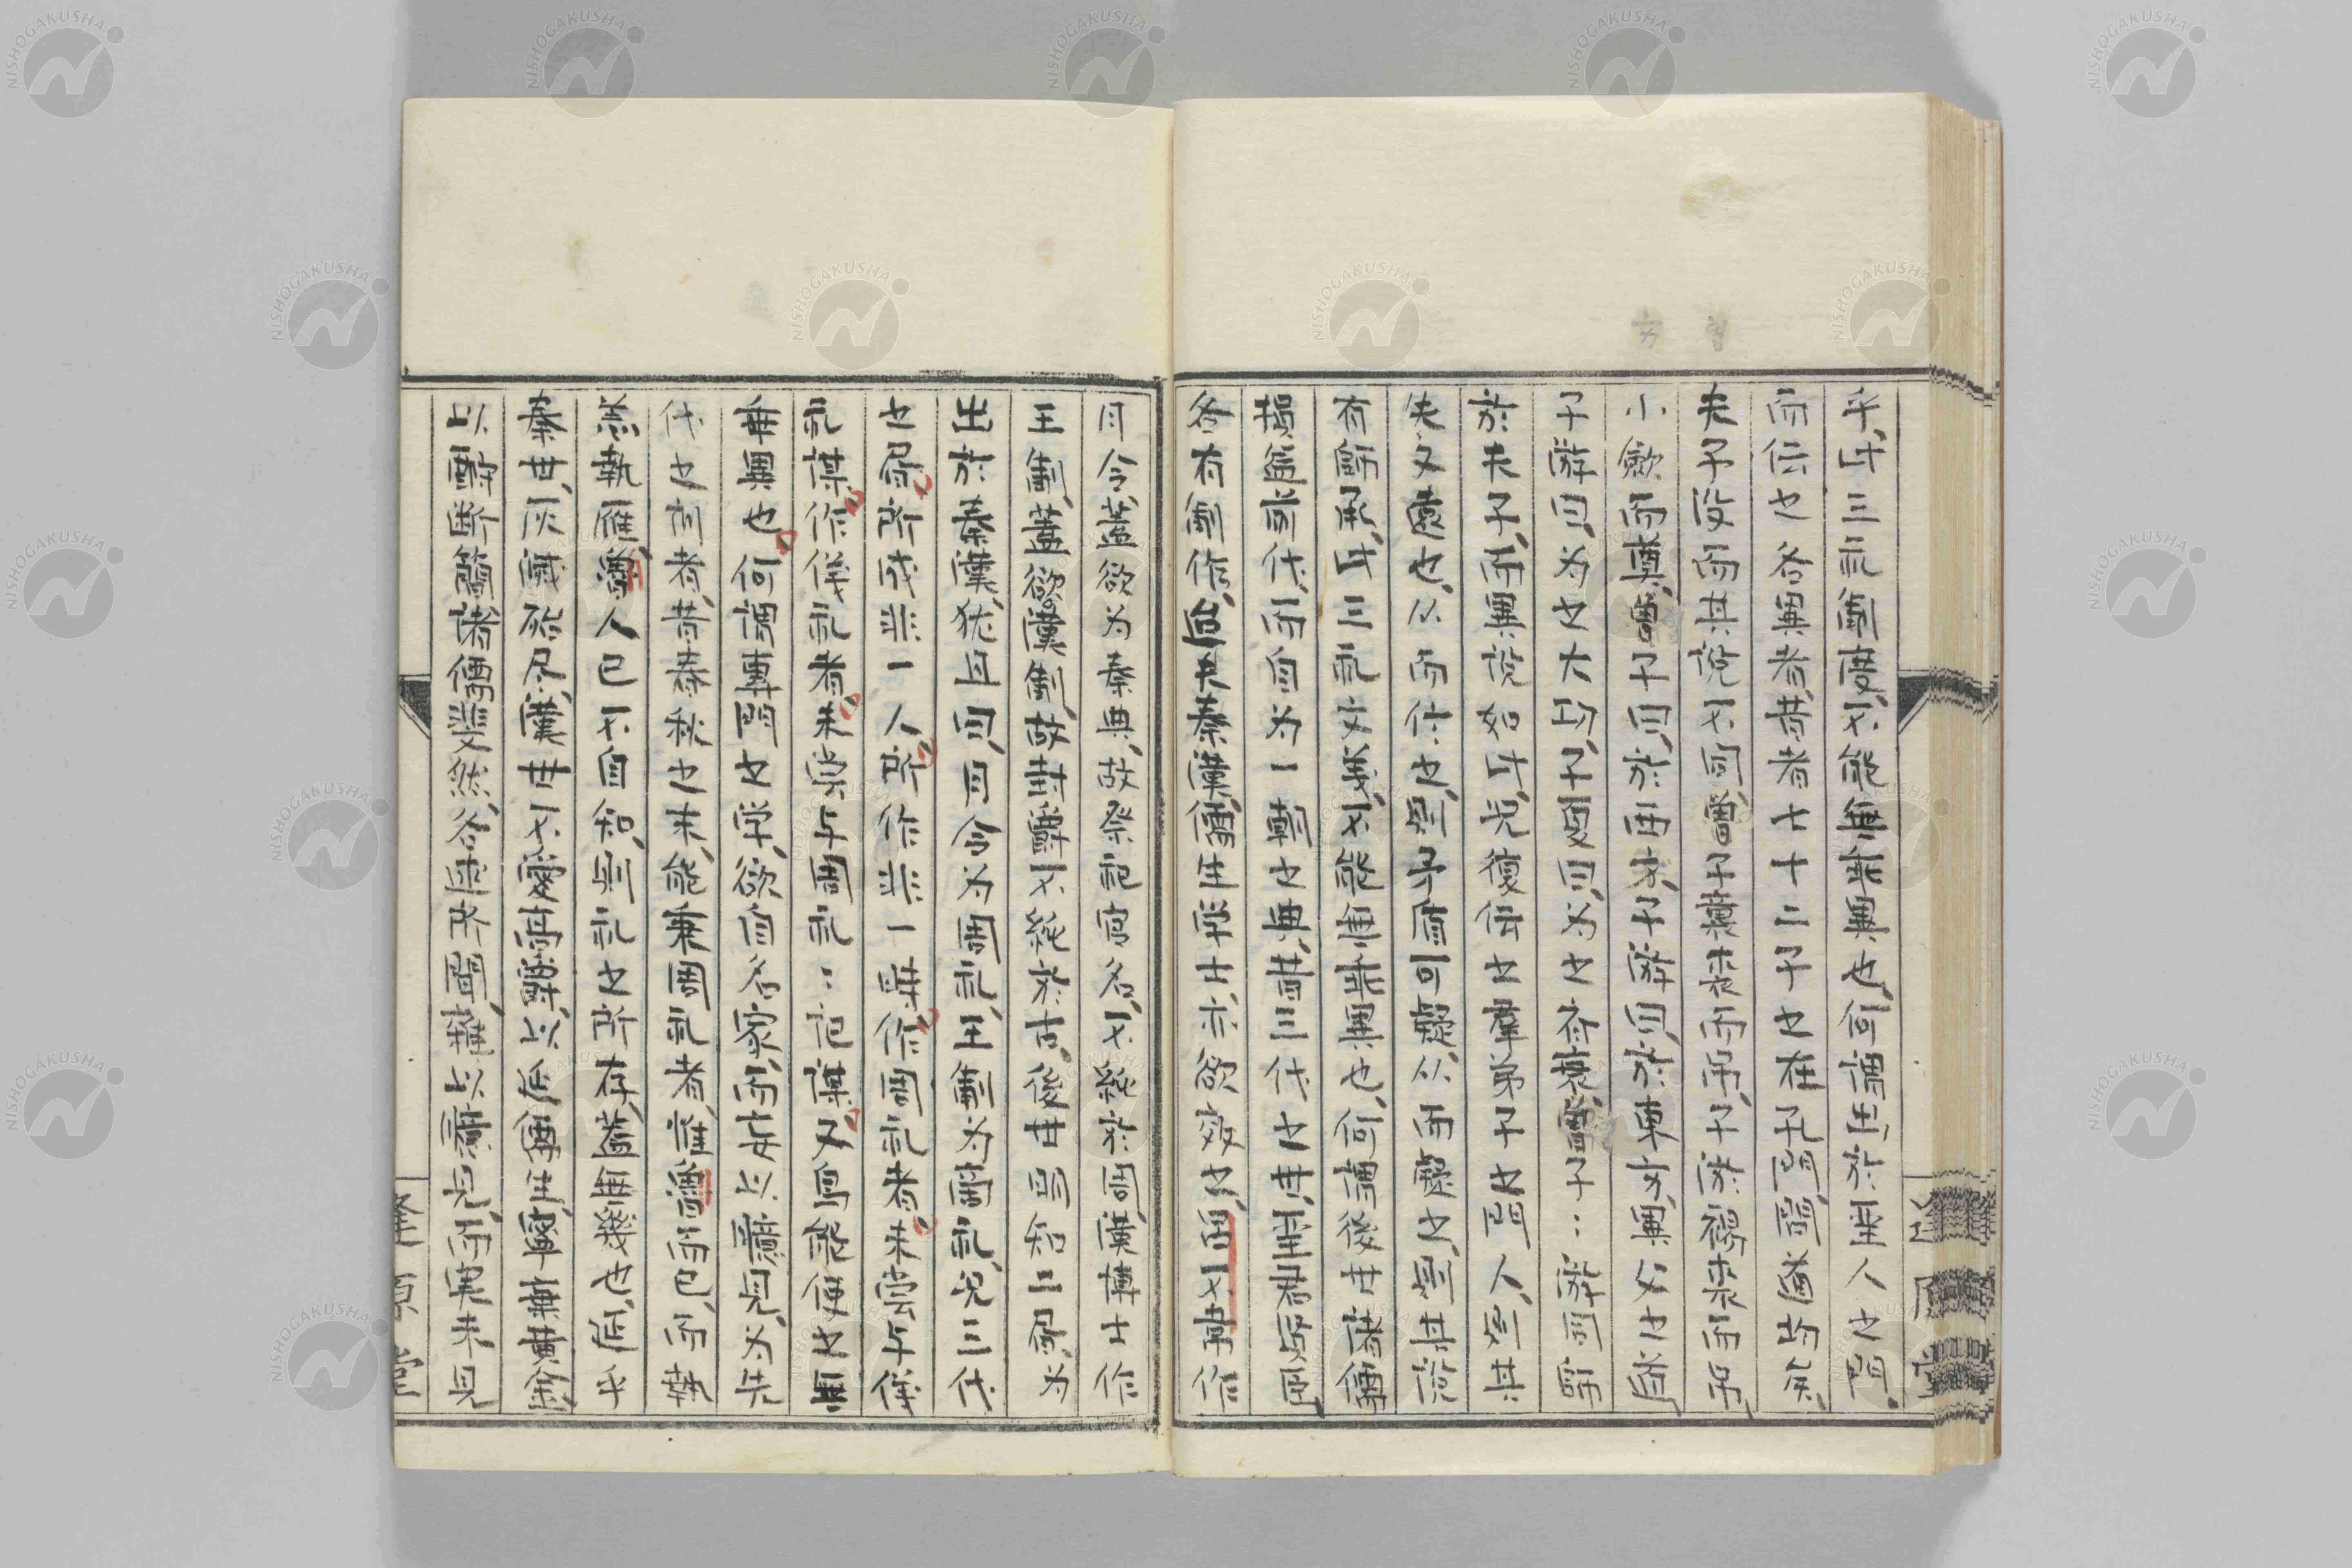 乎、此三礼制度、不能無乖異也、何謂出於聖人之門、
而伝之各異者、昔者七十二子之在孔門、簡
夫子没而其説不同、曾子襲裘而弔、子游裼裘而弔、
小斂而奠、曾子曰、於西方、子游曰、於東方、異父之
子游曰、為之大功、子夏曰、為之齊衰、曾子〻游同師
於夫子、而異説如此、況復伝之羣弟子之門人、則其
失又遠也、从而伝之、則矛盾可疑、从而疑之、則其説
有師承、此三礼文義、不能無乖異也、何謂後世諸儒
損益前代、而自為一朝之典、昔三代之世、聖君賢臣
各有制作、秦漢儒生学士、亦欲效之、呂不韋作
月令、蓋欲為秦典、故祭祀官名、不純於周、漢博士作
王制、蓋欲為漢制、故封爵不純於古、後世明知二書為
出於秦漢、猶且曰、月令為周礼、王制為商礼、況三代
之書、所成非一人所作非一時、作周礼者、未嘗与儀
礼謀、作儀礼者、未嘗与周礼〻記謀、又烏能使之無
乖異也、何謂専門之学、欲自名家、而妄以臆見、為先
代之訓者、昔春秋之末、能秉周礼者、惟魯而已、而執
羔執雁、魯人已不自知、則礼之所存、蓋無幾也、延乎
秦世、灰滅殆尽、漢世不愛高爵、以延儒生、寧棄黄金
以酬断簡、諸儒斐然、各述所聞、雑以臆見、而実未見
逢原堂